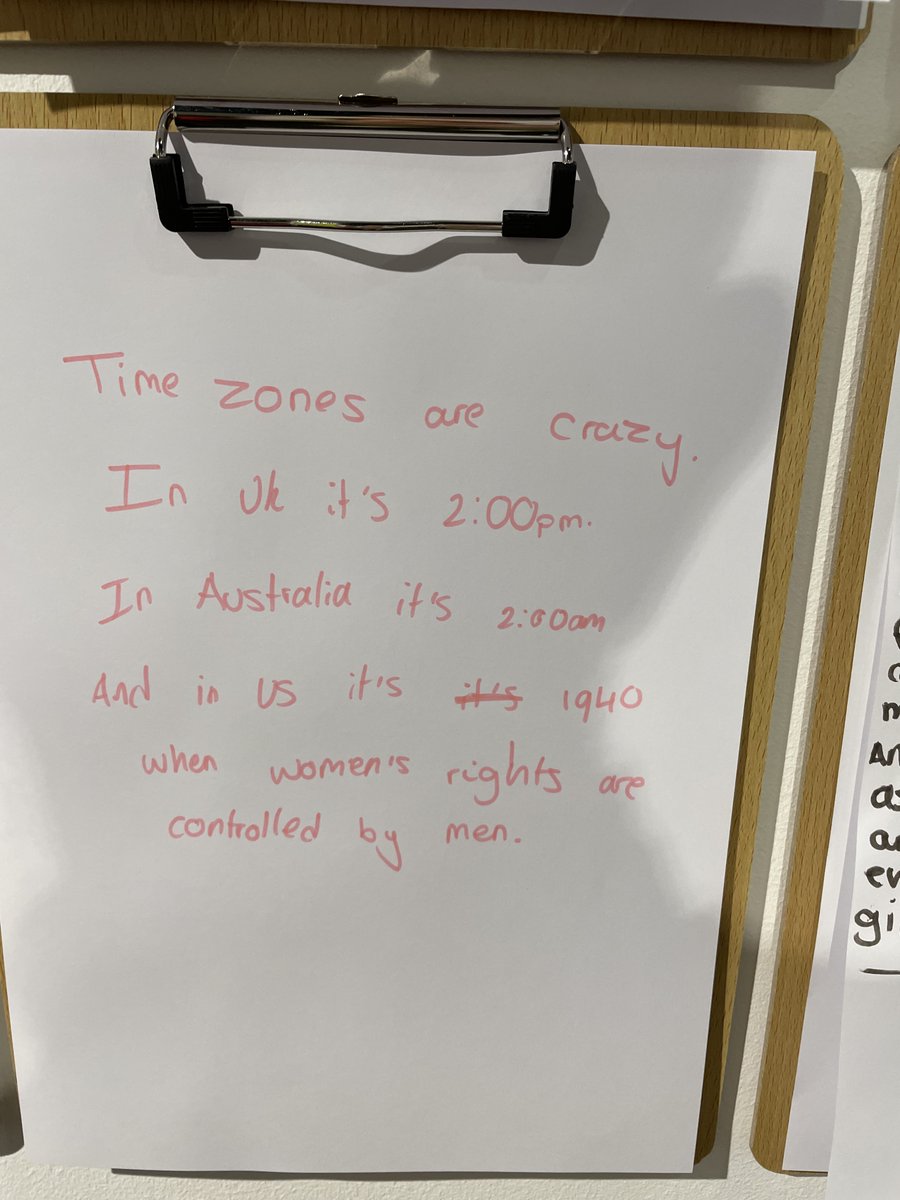 Time zones are crazy.
In Uk it's 2:00pm.
In Australia it's 2:00am
And in US it's it's 1940
when women's rights are
controlled by men.